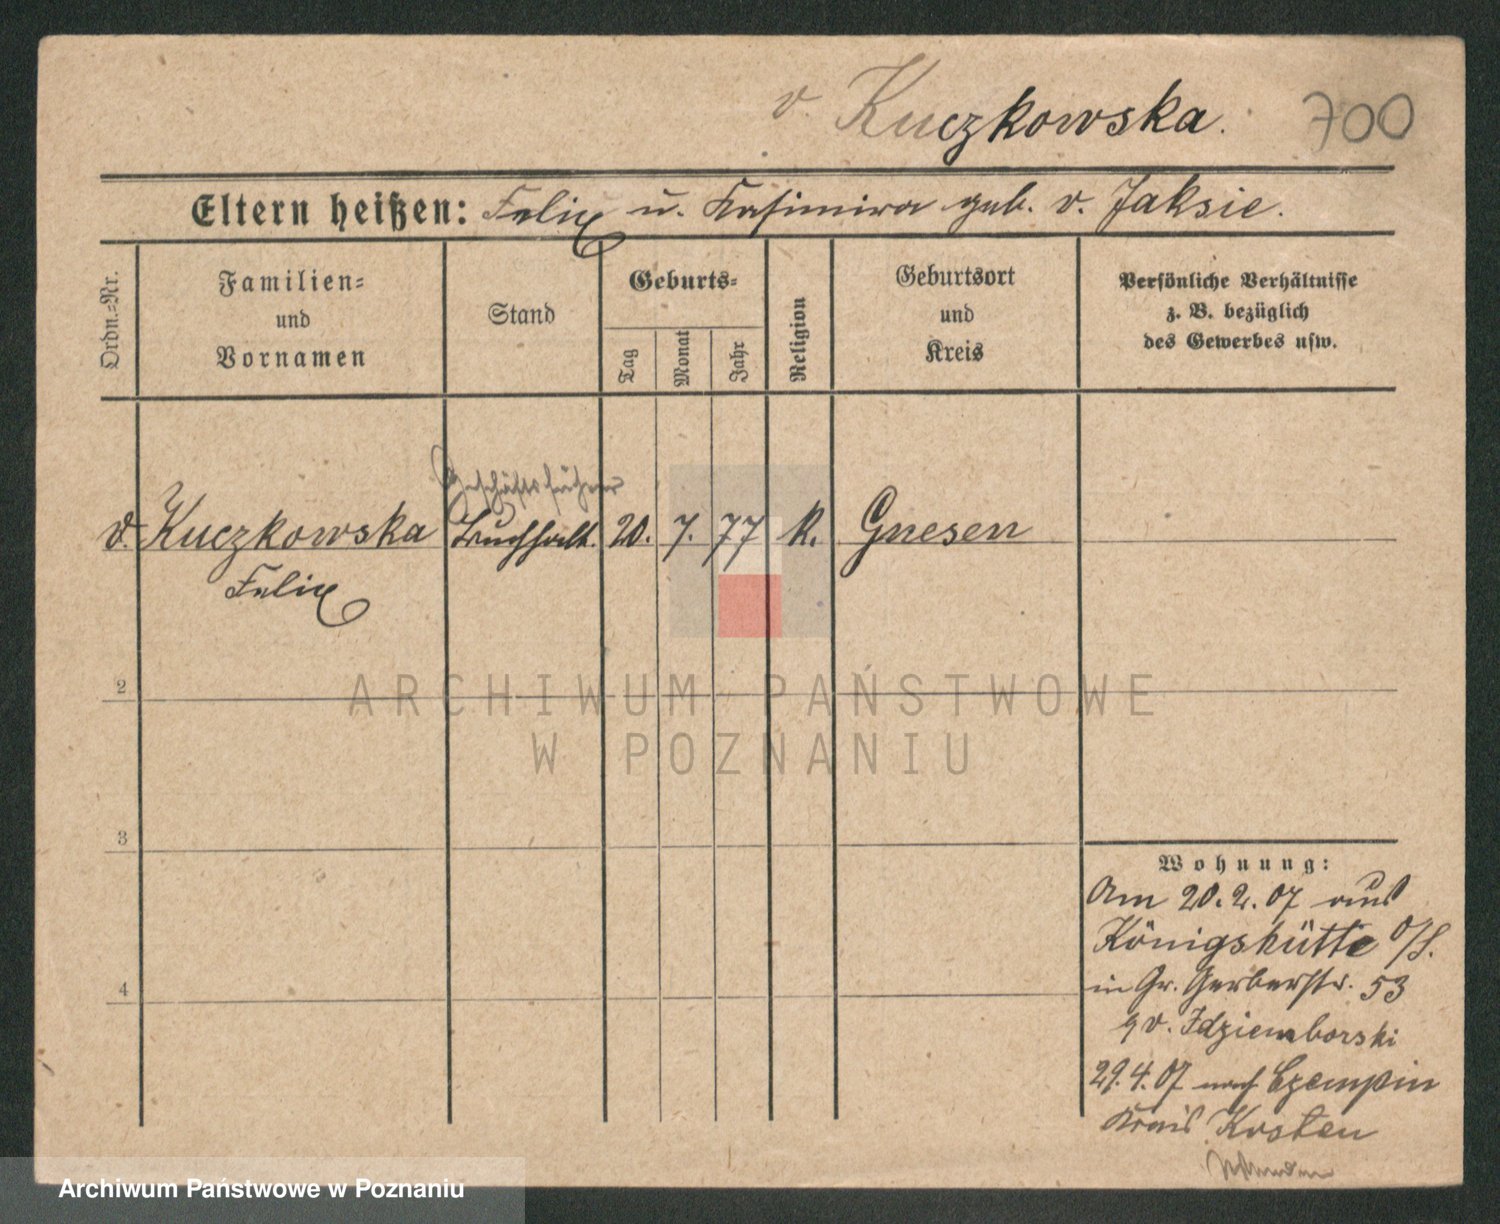 v. Kuczkowska. 700
Eltern heißen: Felix u. Kasimira geb. v. Jaksic.
Ordn.-Nr.
Familien-
und
Vornamen
Stand
Geburts-
Tag
Monat
Jahr
Religion
Geburtsort
und
Kreis
Persönliche Verhältnisse
z. B. bezüglich
des Gewerbes usw.
Geschäftsführer
v. Kuczkowska Buchhalt. 20. 7. 77 K. Gnesen
Felix
2
3
4
ARCHIWUM PAŃSTWOWE
W POZNANIU
Wohnung:
Am 20.2.07 aus
Königshütte O/S.
in Gr. Gerberstr. 53
v. Idziemborski
29.4.07 nach Czempin
Kreis Kosten
Archiwum Państwowe w Poznaniu